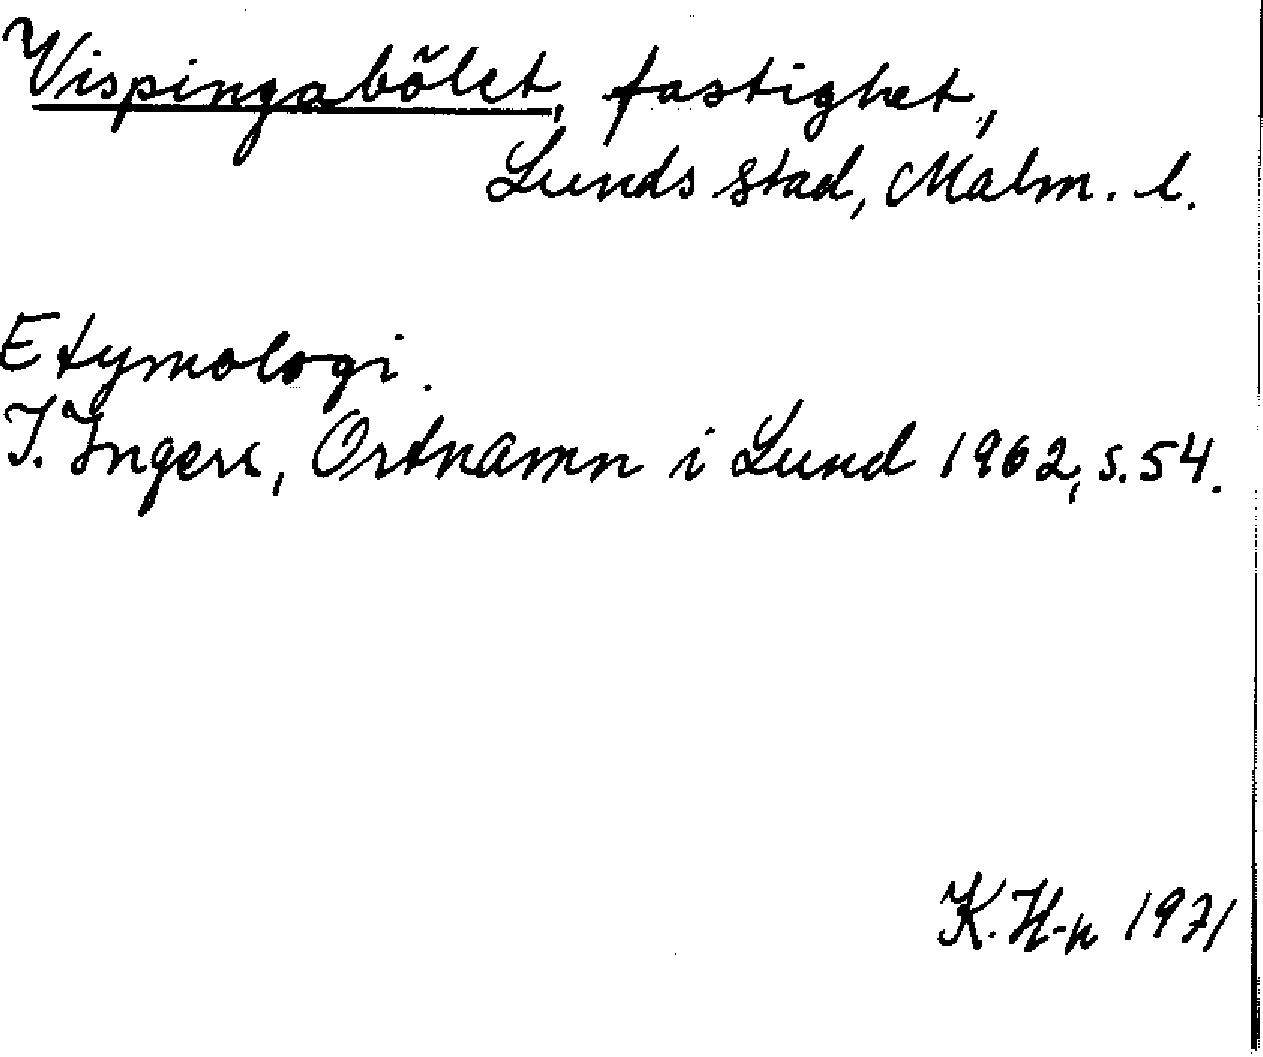 Vispingabölet, fastighet,
Lunds stad, Malm. l.
Etymologi.
I. Ingers, Ortnamn i Lund 1962, s. 54.
K. H-n 1971